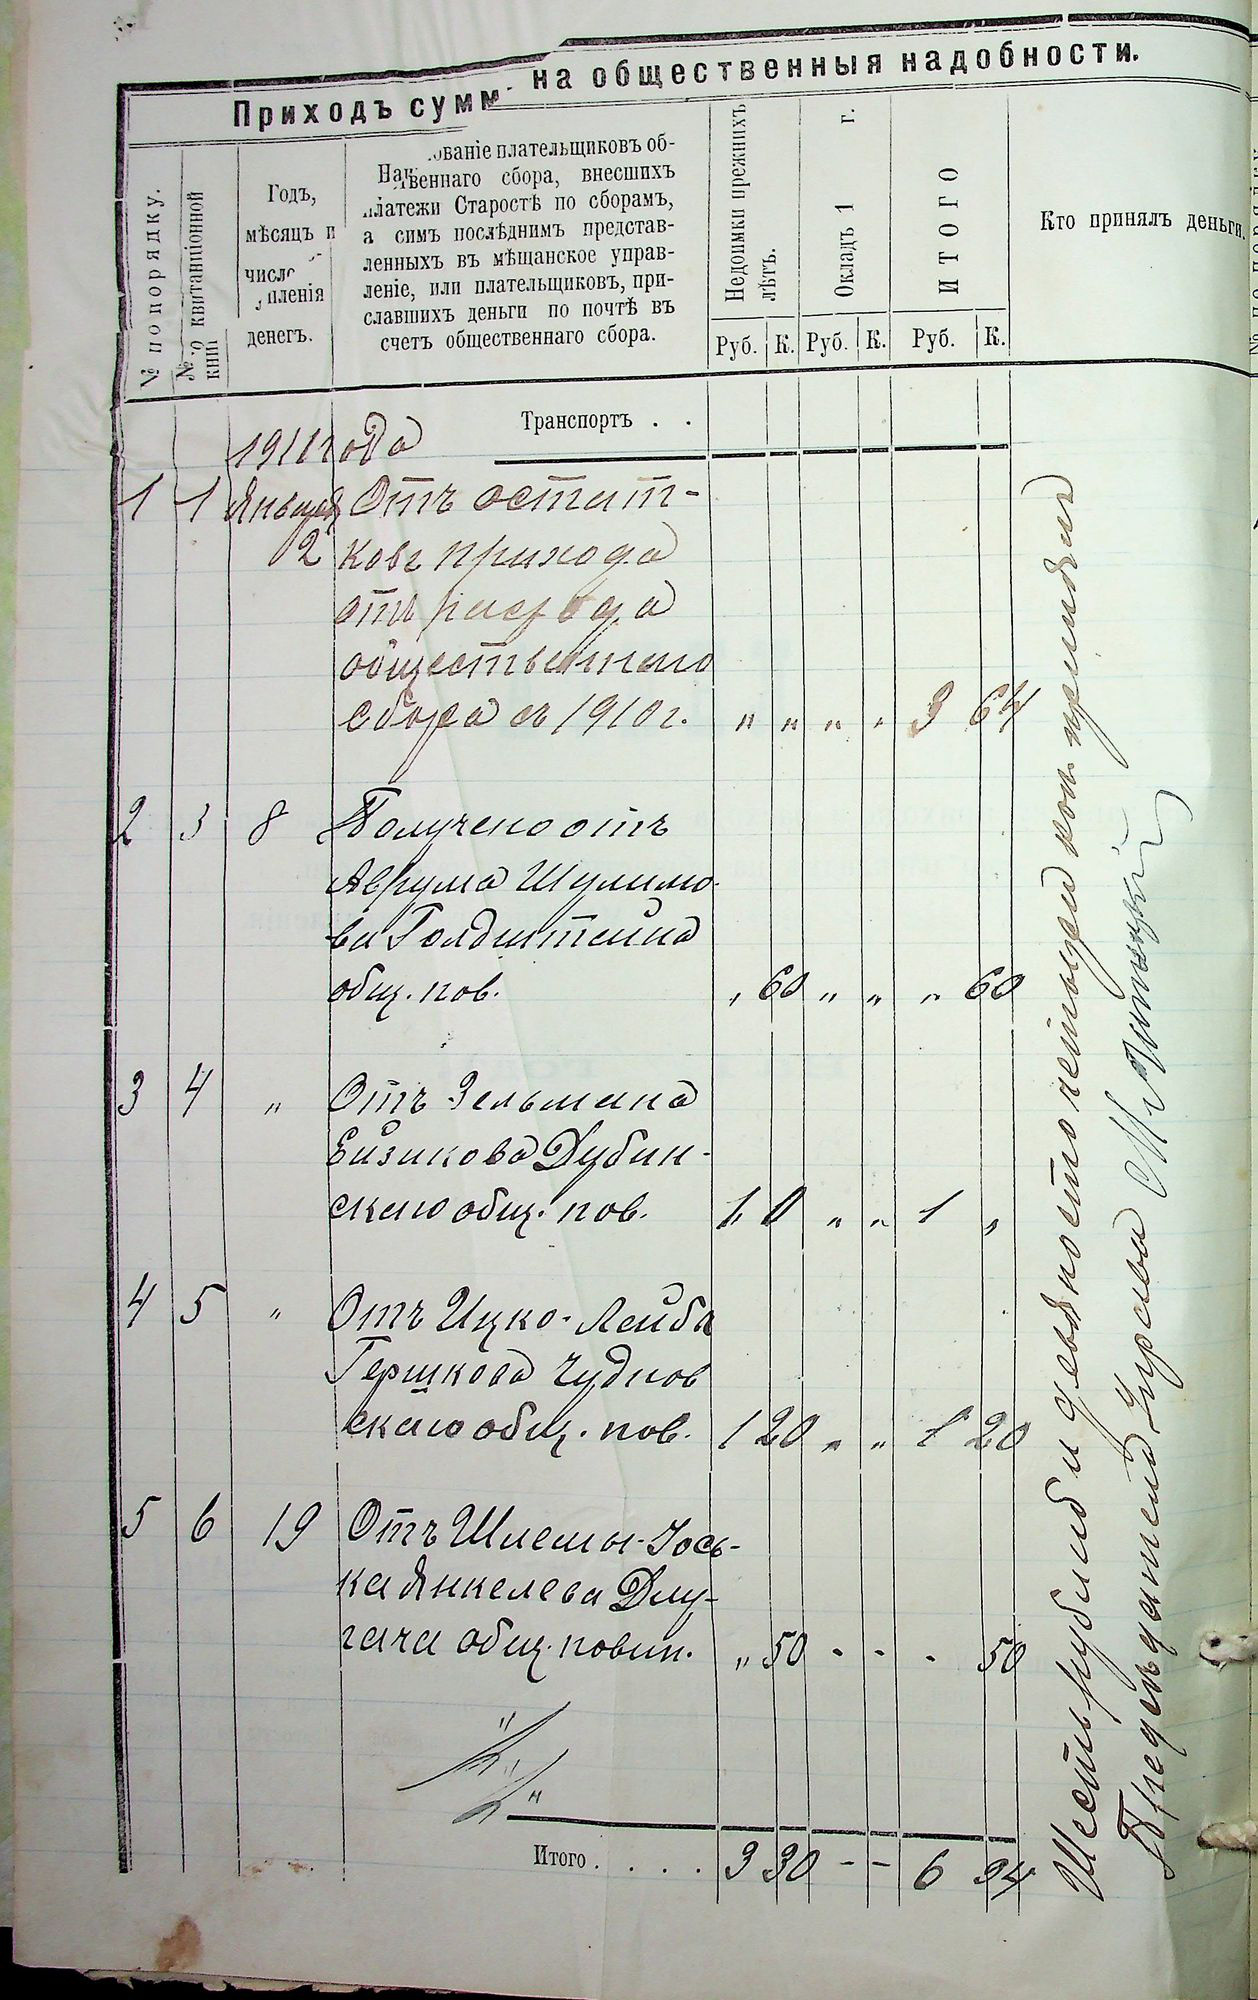 Приходъ суммъ на общественныя надобности.
№ по порядку.
№ по квитанціонной
книг
Годъ,
мѣсяцъ и
число
пленія
денегъ.
Наи ованіе плательщиковъ об-
твеннаго сбора, внесшихъ
платежи Старостѣ по сборамъ,
а симъ послѣднимъ представ-
ленныхъ въ мѣщанское управ-
леніе, или плательщиковъ, при-
славшихъ деньги по почтѣ въ
счетъ общественнаго сбора.
Недоимки прежнихъ
лѣтъ.
Окладъ 1 г.
ИТОГО
Кто принялъ деньги.
Руб. К. Руб. К. Руб. К.
Транспортъ . .
1911 года
1 1 Января Отъ остат-
2 ковъ прихода
отъ расхода
общественнаго
сбора съ 1910 г. " " " " 3 64
2 3 8 Получено отъ
Аврума Шулимо-
ва Голдштейна
общ. пов. " 60 " " " 60
3 4 " Отъ Зельмана
Ейзикова Дубин-
скаго общ. пов. 1 0 " " 1 "
4 5 " Отъ Ицко-Лейба
Гершкова Чуднов
скаго общ. пов. 1 20 " " 1 20
5 6 19 Отъ Шлемы-Іось-
ка Янкелева Длу-
гача общ. повин. " 50 - - - 50
Итого . . . . 3 30 - - 6 94
Шесть рублей девяносто четыре коп. принялъ
Предсѣдатель Управы